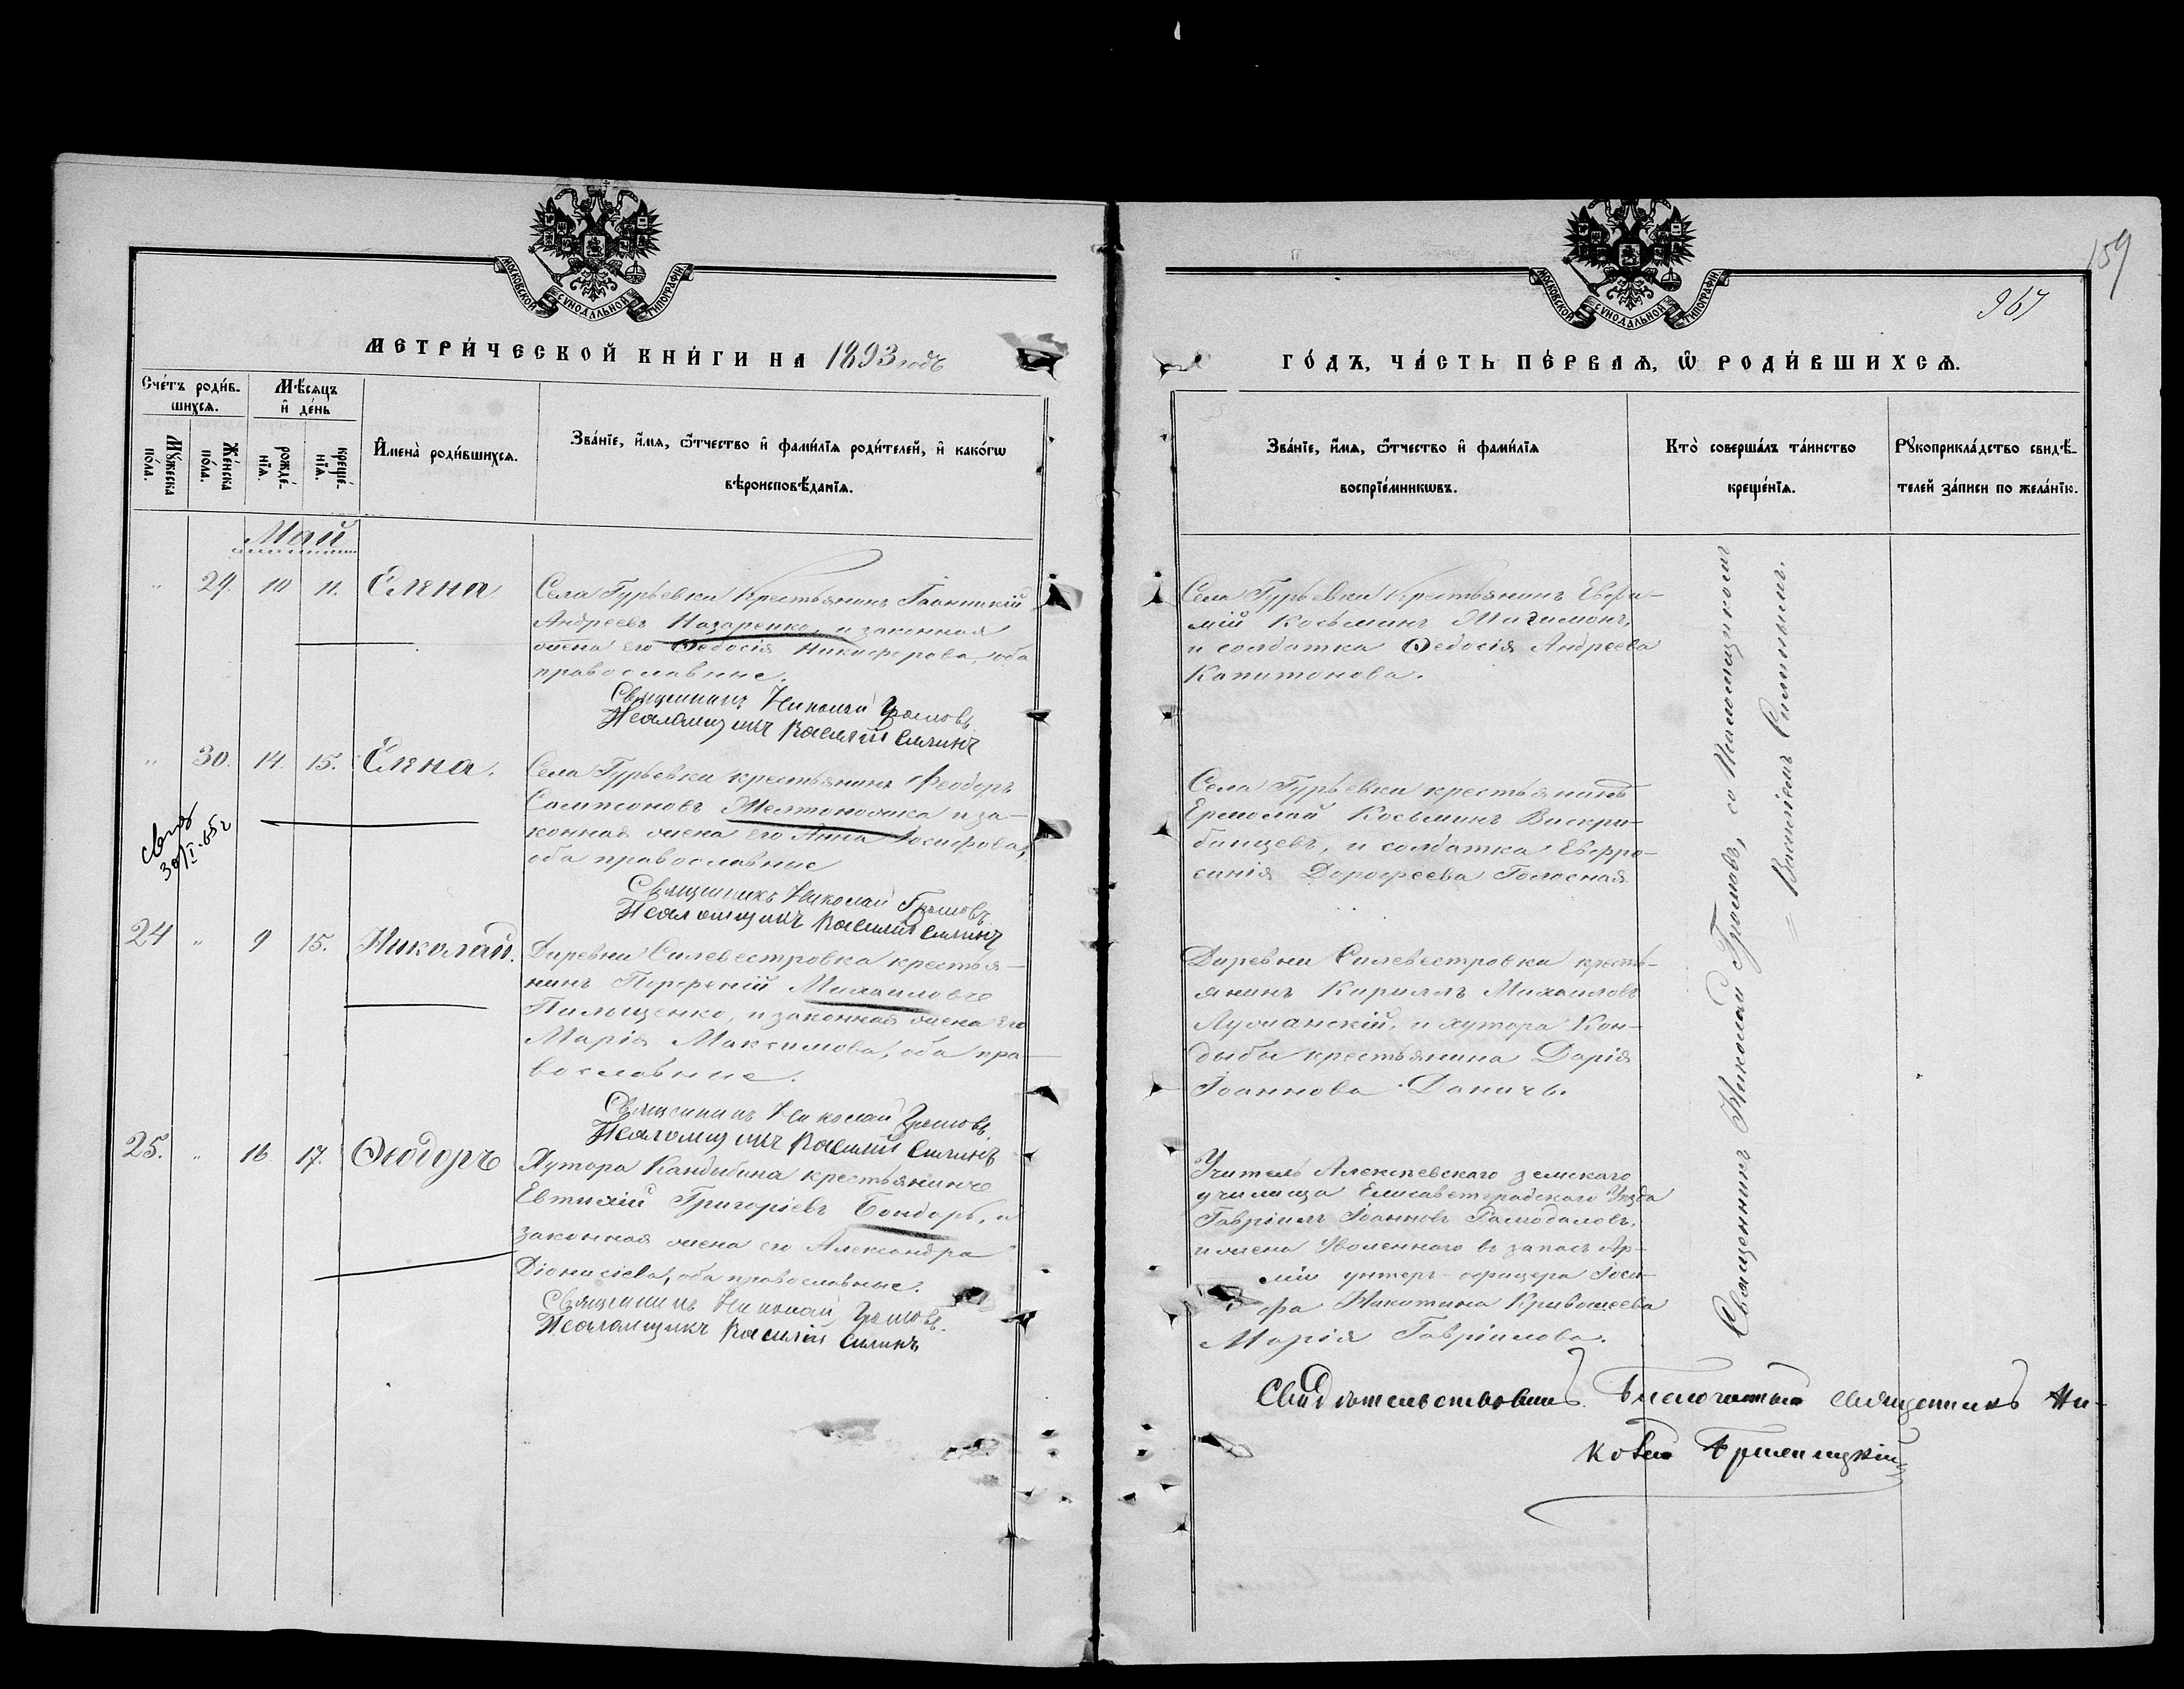 МОСКОВСКОЙ СУНОДАЛЬНОЙ ТИПОГРАФІИ
МЕТРИ́ЧЕСКОЙ КНИ́ГИ НА 1893 годъ
Сче́тъ роди́в-
шихсѧ.
Мѣ́сѧцъ
и҆ де́нь
Мꙋ́жеска
по́ла.
Же́нска
по́ла.
рожде́-
нїѧ.
креще́-
нїѧ.
И҆мена̀ роди́вшихсѧ.
Зва́нїе, и҆́мѧ, ѻ҆́тчество и҆ фами́лїѧ роди́телей, и҆ како́гѡ
вѣроисповѣ́данїѧ.
Май
" 29. 10 11. Елена
Села Гурьевки Крестьянинъ Іоанникій
Андреевъ Назаренко, и законная
жена его Ѳедосія Никифорова, оба
православные.
Священникъ Николай Громовъ
Псаломщикъ Василій Силинъ
" 30. 14. 15. Елена.
Села Гурьевки крестьянинъ Феодоръ
Сампсоновъ Желтоножка и за-
конная жена его Анна Іосифова,
оба православные
Священникъ Николай Громовъ
Псаломщикъ Василій Силинъ
30/I-65 г
24 " 9 15. Николай.
Деревни Силевестровка крестья-
нинъ Порфирій Михаиловъ
Пилющенко, и законная жена его
Марія Максимова, оба пра-
вославные.
Священникъ Николай Громовъ
Псаломщикъ Василій Силинъ
25. " 16 17. Ѳеодоръ
Хутора Кандыбина крестьянинъ
Евтихій Григоріевъ Бондарь, и
законная жена его Александра
Діонисіева, оба православные.
Священникъ Николай Громовъ.
Псаломщикъ Василій Силинъ
159
967
МОСКОВСКОЙ СУНОДАЛЬНОЙ ТИПОГРАФІИ
ГО́ДЪ, ЧА́СТЬ ПЕ́РВАѦ, Ѡ҆ РОДИ́ВШИХСѦ.
Зва́нїе, и҆́мѧ, ѻ҆́тчество и҆ фами́лїѧ
воспрїе́мникѡвъ.
Кто̀ соверша́лъ та́инство
креще́нїѧ.
Рꙋкоприкла́дство свидѣ́-
телей за́писи по жела́нїю.
Села Гурьевки Крестьянинъ Евфи-
мій Косьминъ
и солдатка Ѳедосія Андреева
Капитонова.
Села Гурьевки крестьянинъ
Ермолай Косьминъ Вискри-
бинцевъ, и солдатка Евфро-
синія Дорофеева Голосная.
Деревни Силевестровки кресть-
янинъ Кириллъ Михаиловъ
Лужанскій, и хутора Кон-
дыбы крестьянина Дарія
Іоаннова Даничь.
Учитель Алексѣевскаго земскаго
училища Елисаветградскаго Уѣзда
Гавріилъ Іоанновъ Рамодановъ,
и жена уволеннаго въ запасъ Ар-
міи унтеръ-офицера Іоси-
фа Никитина Кривошеева
Марія Гавріилова.
Священникъ Николай Громовъ, со Псаломщикомъ
= Василіемъ Силинымъ.
Свидѣтельствовалъ. Благочинный священникъ Ни-